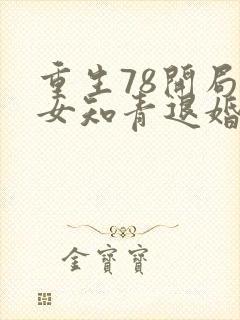 重生78開局
女知青退婚
金寶寶